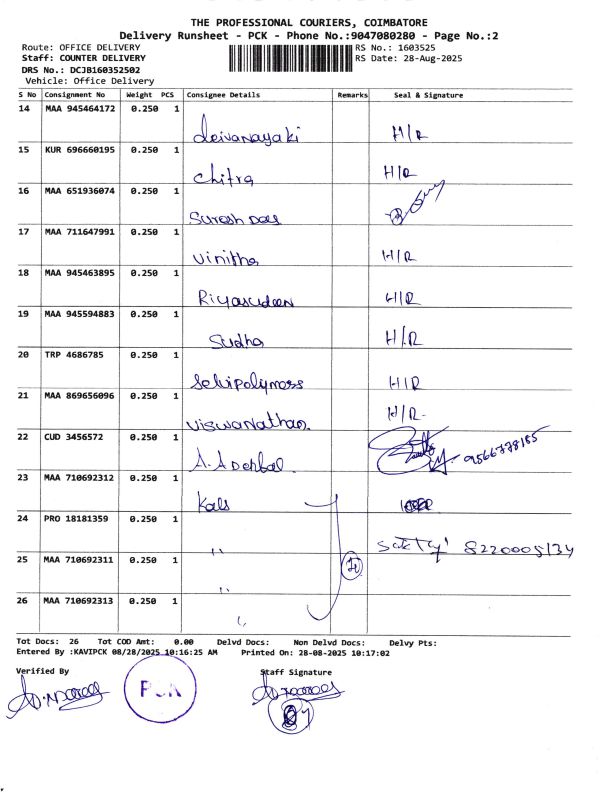 THE PROFESSIONAL COURIERS, COIMBATORE
Delivery Runsheet - PCK - Phone No.:9047080280 - Page No.:2
Route: OFFICE DELIVERY RS No.: 1603525
Staff: COUNTER DELIVERY RS Date: 28-Aug-2025
DRS No.: DCJB160352502
Vehicle: Office Delivery
S No Consignment No Weight PCS Consignee Details Remarks Seal & Signature
14 MAA 945464172 0.250 1 deivanayaki H/R
15 KUR 696660195 0.250 1 chitra H/R
16 MAA 651936074 0.250 1 Suresh
17 MAA 711647991 0.250 1 Vinitha H/R
18 MAA 945463895 0.250 1 Riyasudeen H/R
19 MAA 945594883 0.250 1 Sudha H/R
20 TRP 4686785 0.250 1 Selvipolymers H/R
21 MAA 869656096 0.250 1 Viswanathan H/R
22 CUD 3456572 0.250 1 A. 9566778185
23 MAA 710692312 0.250 1 Kals
24 PRO 18181359 0.250 1 " 8220005134
25 MAA 710692311 0.250 1 "
26 MAA 710692313 0.250 1 "
Tot Docs: 26 Tot COD Amt: 0.00 Delvd Docs: Non Delvd Docs: Delvy Pts:
Entered By :KAVIPCK 08/28/2025 10:16:25 AM Printed On: 28-08-2025 10:17:02
Verified By Staff Signature
PCK